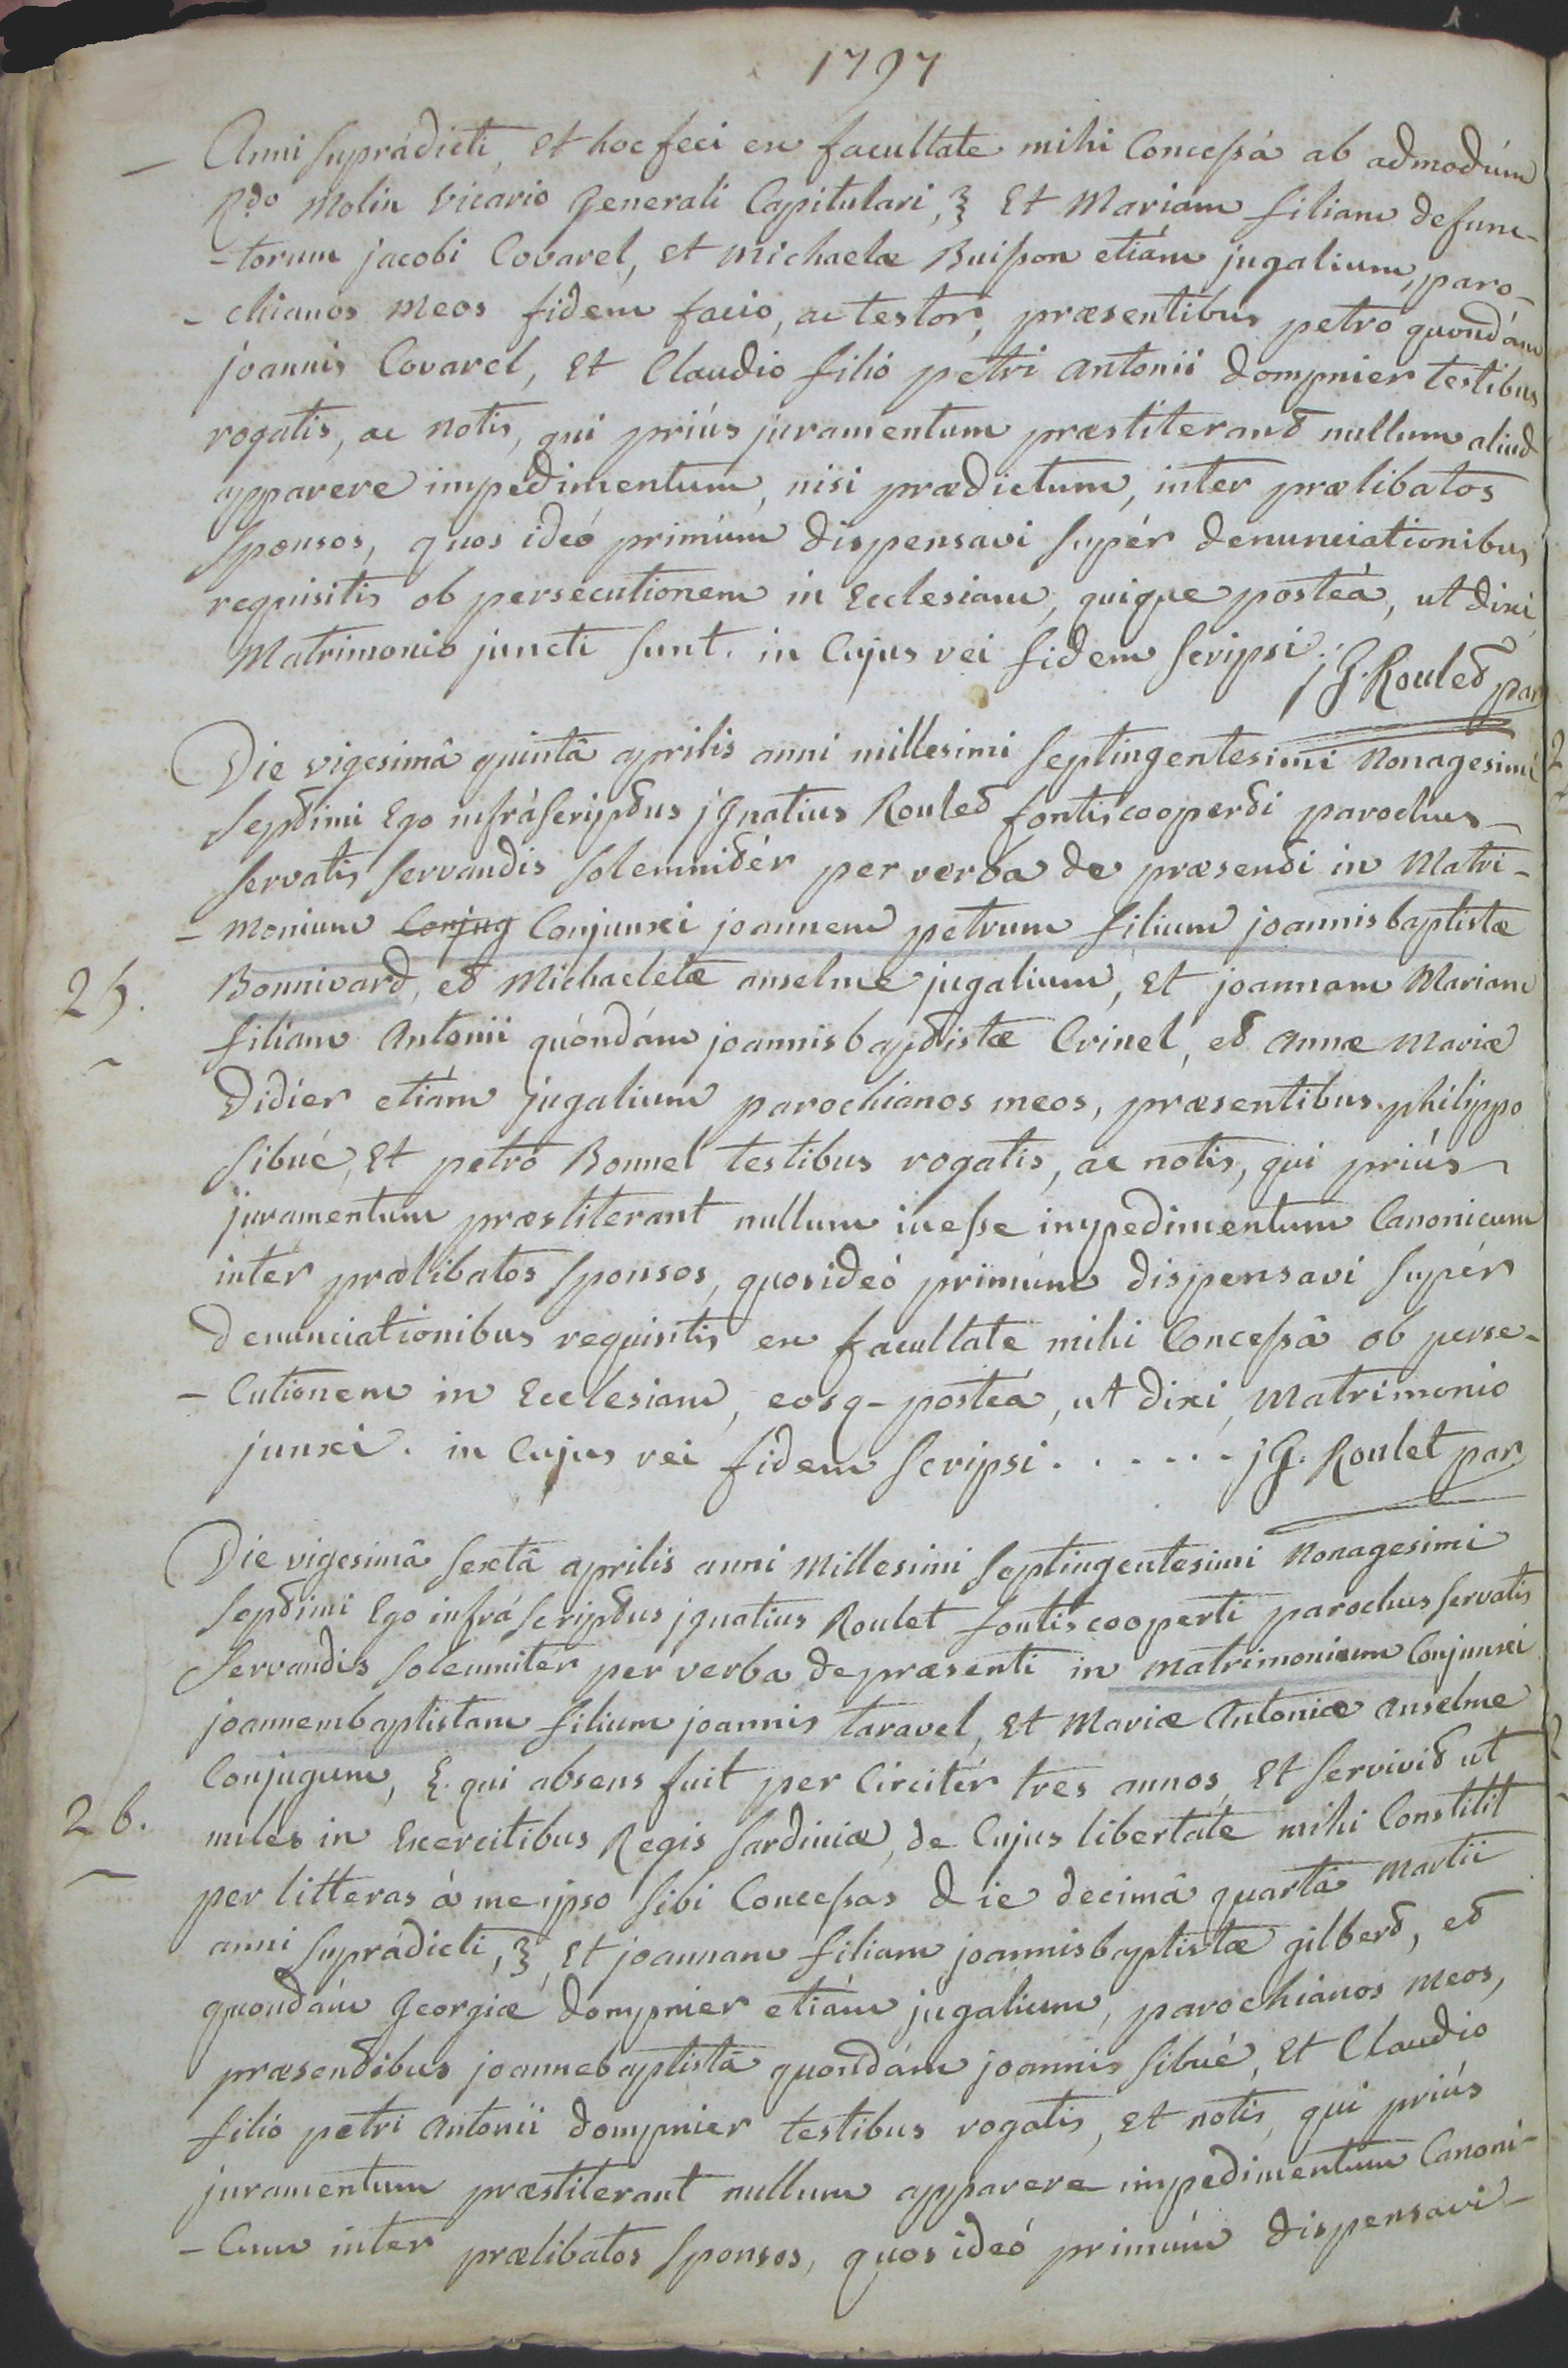 1797
– Anni suprádicti, et hoc feci ex facultate mihi Concessâ ab admodúm
Rdo Molin Vicário Generali Capitulari, Et Mariam filiam defunc-
-torum jacobi Covarel, et Michaelæ Buisson etiám jugalium, paro-
-chianos meos fidem facio, ac testor, præsentibus petro quondám
joannis Covarel, et Claudio filió petri antonii dompnier testibus
rogatis, ac notis, qui priús juramentum præstiterant nullum aliud
apparere impedimentum, nisi prædictum, inter prælibatos
Sponsos, quos ideó primúm dispensavi supér denunciationibus
requisitis ob persecutionem in Ecclesiam, quique posteà, ut dixi
Matrimonio juncti sunt. in Cujus rei fidem scripsi. jG. Roulet par
Die vigesimâ quintâ aprilis anni millesimi septingentesimi Nonagesimi
septimi Ego infráscriptus jGnatius Roulet fontiscooperti parochus
servatis servandis solemnitér per verba de præsenti in Matri-
-monium Conjug Conjunxi joannem petrum filium joannisbaptistæ
25. Bonnivard, et Michaeletæ anselme jugalium, Et joannam Mariam
filiam Antonii quóndám joannisbaptistæ Crinel, et Annæ Mariæ
Didier etiám jugalium parochianos meos, præsentibus philippo
sibué, Et petro Bonnel testibus rogatis, ac notis, qui priús
juramentum præstiterant nullum inesse impedimentum Canonicum
inter prælibatos sponsos, quosideó primúm dispensavi supér
denunciationibus requisitis ex facultate mihi Concessâ ob perse-
-Cutionem in Ecclesiam, eosq- posteá, ut dixi, Matrimonio
junxi. in Cujus rei fidem scripsi. . . . . . jG. Roulet par
Die vigesimâ sextâ aprilis anni Millesimi septingentesimi Nonagesimi
septimi Ego infráscriptus jgnatius Roulet fontiscooperti parochus servatis
servandis solemnitér per verba depræsenti in Matrimonium Conjunxi
joannembaptistam filium joannis taravel, Et Mariæ Antoniæ anselme
Conjugum, qui absens fuit per Circitér tres annos, Et servivit ut
26. miles in Exercitibus Regis Sardiniæ, de Cujus libertate mihi Constitit
per litteras á me ipso sibi Concessas die decimâ quartâ Martii
anni suprádicti, Et joannam filiam joannisbaptistæ gilbert, et
quondám Georgiæ dompnier etiám jugalium, parochianos meos,
præsentibus joannebaptistâ quondám joannis sibué, Et Claudio
filió petri antonii dompnier testibus rogatis, et notis, qui priús
juramentum præstiterant nullum apparere impedimentum Canoni-
-Cum inter prælibatos sponsos, quos ideó primúm dispensavi